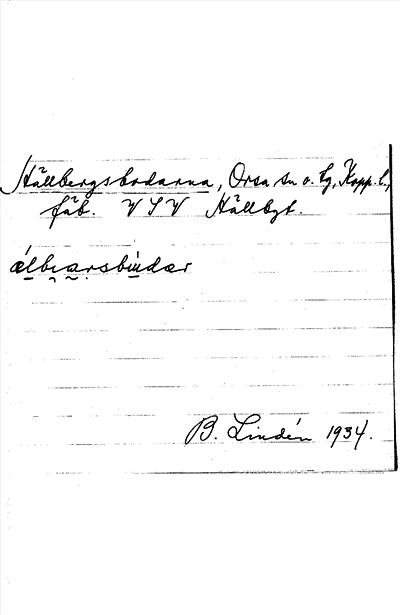 Hällbergsbodarna, Orsa sn o. tg, Kopp. l.,
fäb. V S V Hällbgt.
ælbɛarsbu̇dær
B. Lindén 1934.